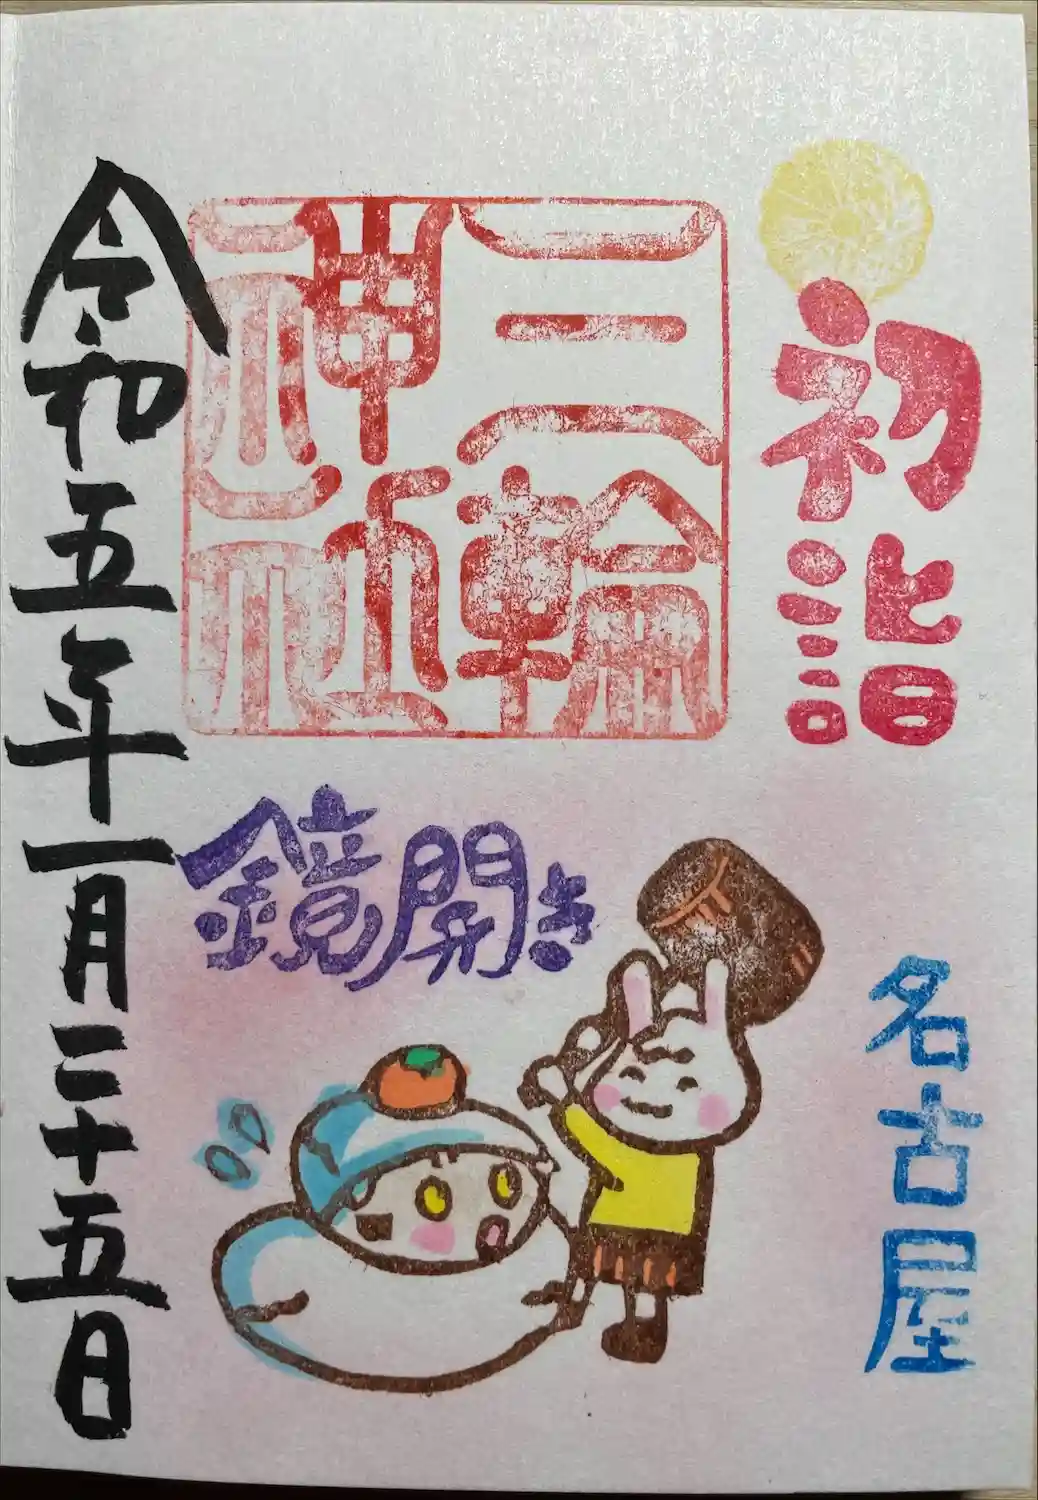 初詣
三輪
神社
名古屋
鏡開き
令和五年一月二十五日